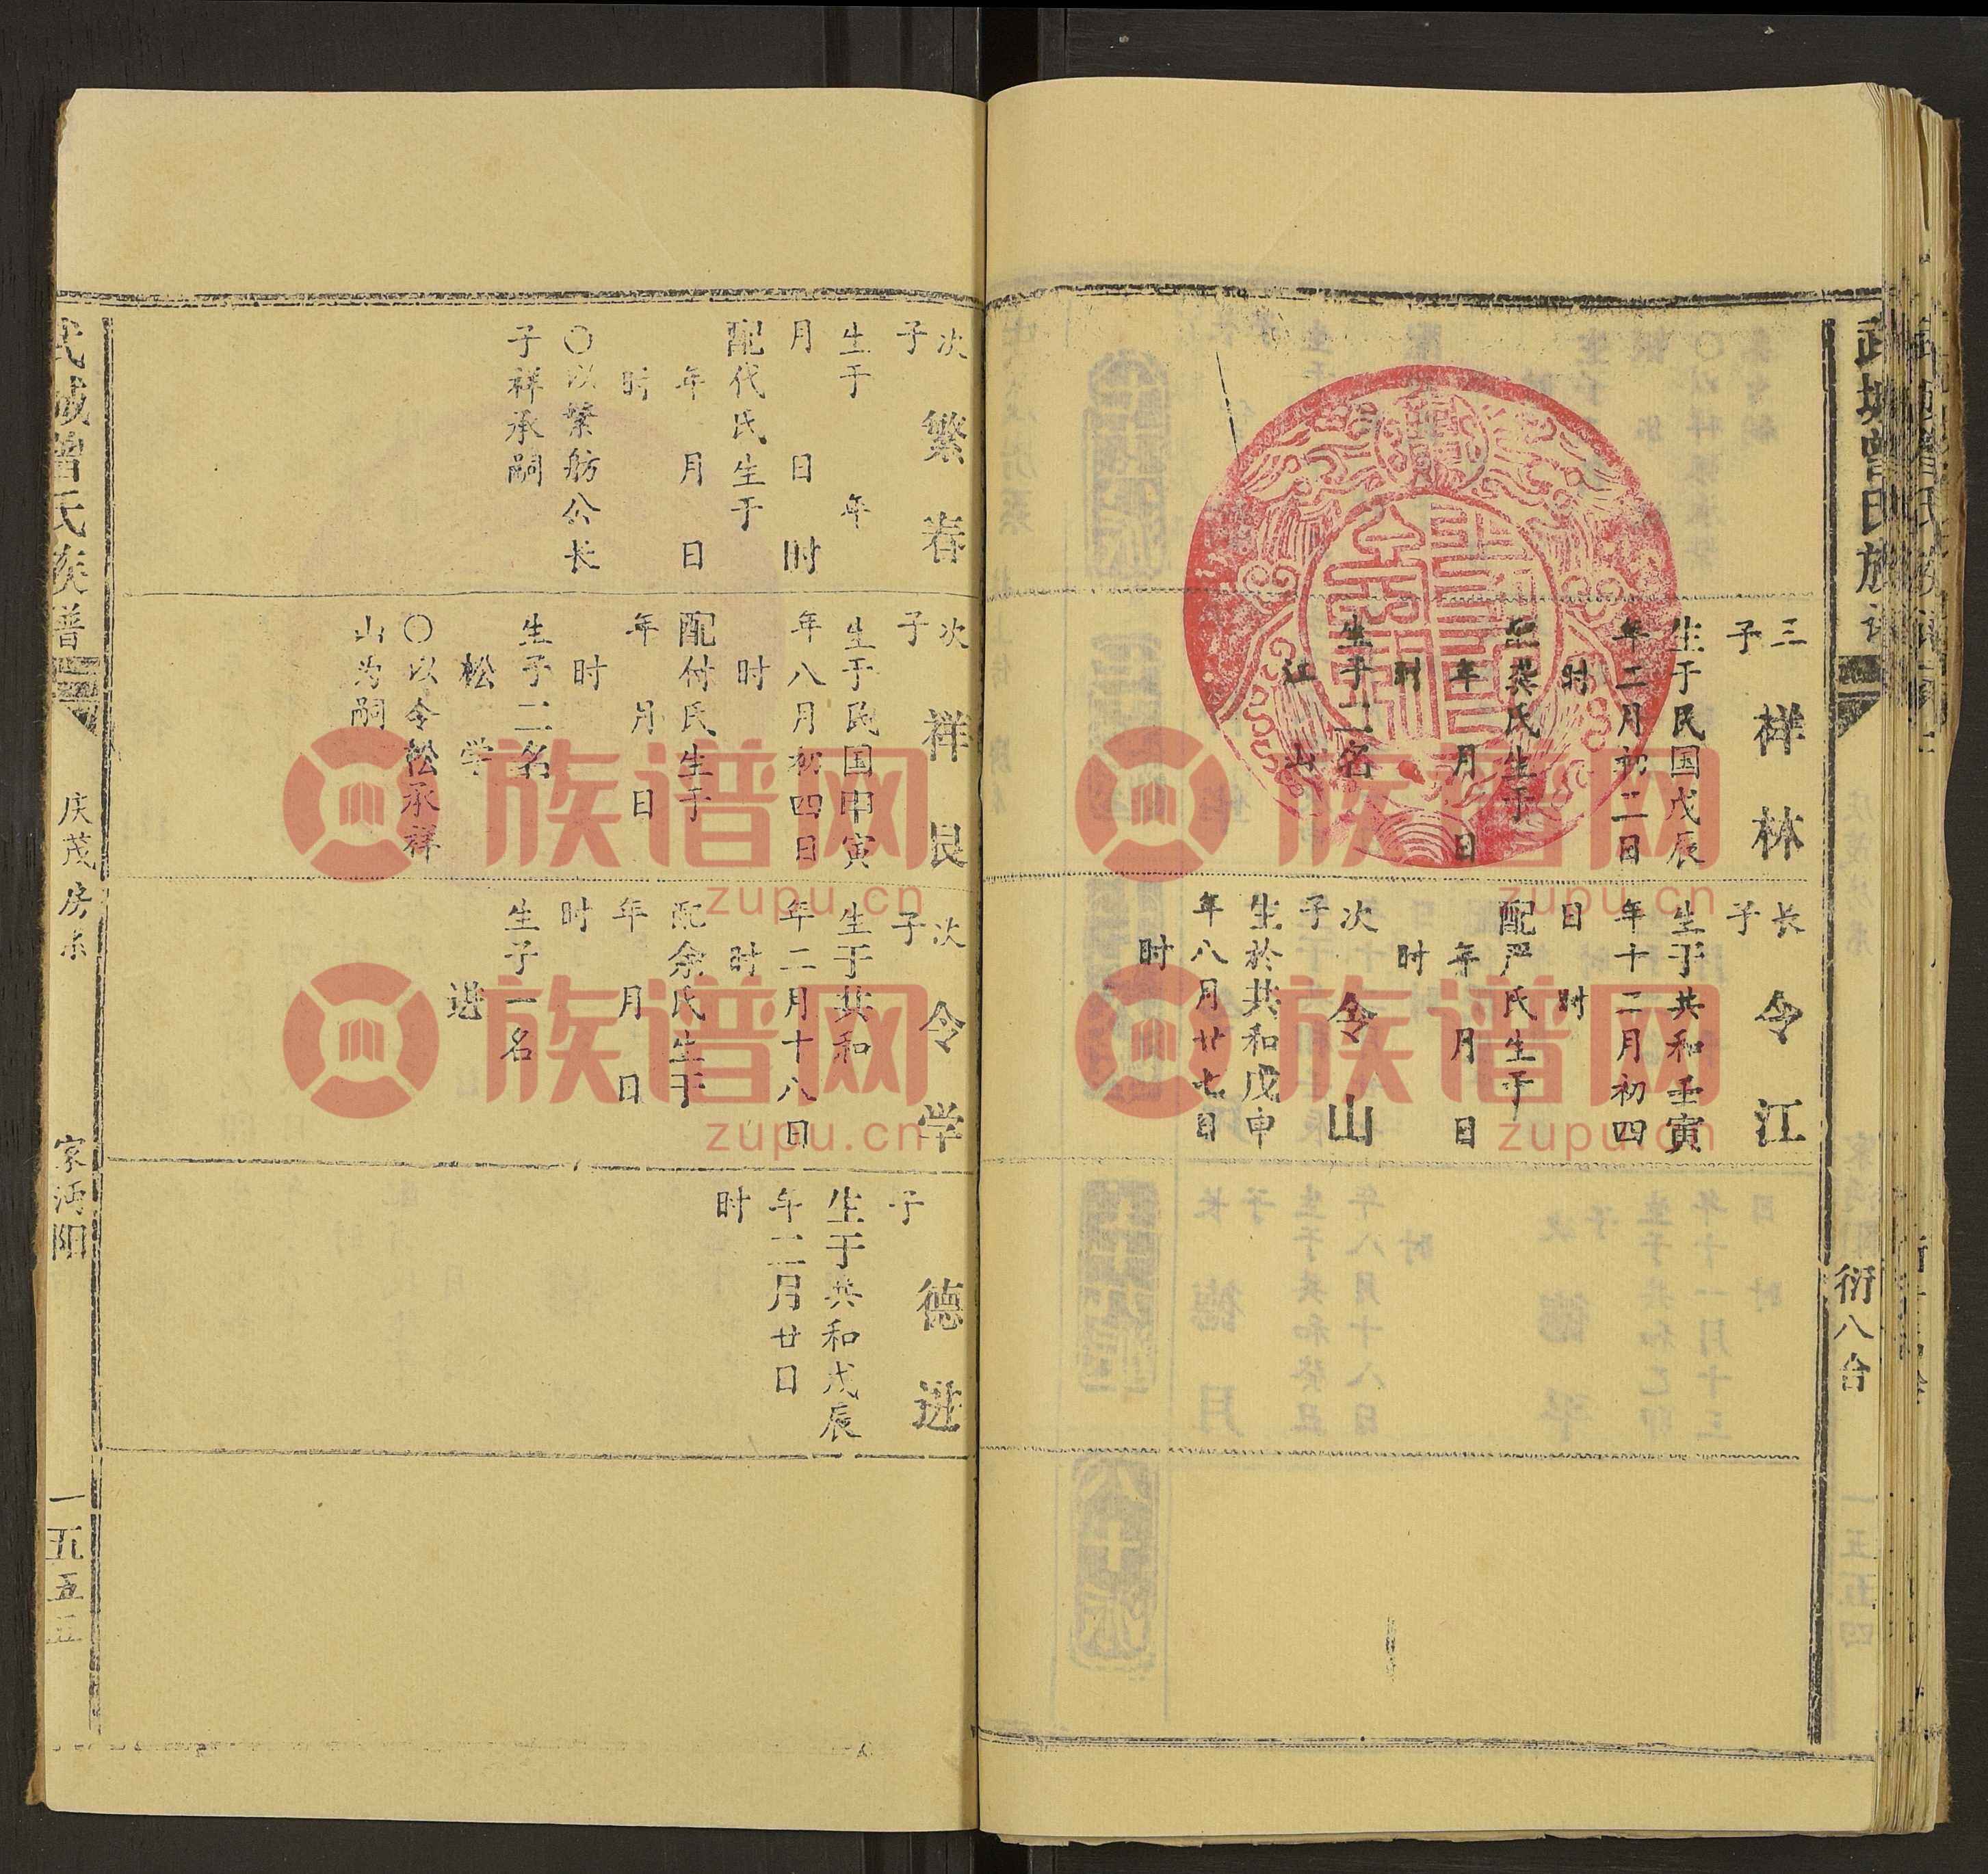 武城曾氏族
衍八合
三子 祥林
生于民国戊辰
年二月初二日
时
配龚氏生于
年 月 日
时
生子二名
江 山
长子 令江
生于共和壬寅
年十二月初四
日 时
配严氏生于
年 月 日
时
次子 令山
生於共和戊申
年八月廿七日
时
次子 繁春
生于 年
月 日 时
配代氏生于
年 月 日
时
〇以繁舫公长
子祥承嗣
次子 祥良
生于民国甲寅
年八月初四日
时
配付氏生于
年 月 日
时
生子二名
松 学
〇以令松承祥
山为嗣
次子 令学
生于共和
年二月十八日
时
配余氏生于
年 月 日
时
生子一名
进
子 德进
生于共和戊辰
年二月廿日
时
武城曾氏族谱
庆茂房系
家沔阳
一五五三
族谱网
zupu.cn
族谱网
zupu.cn
族谱网
zupu.cn
族谱网
zupu.cn